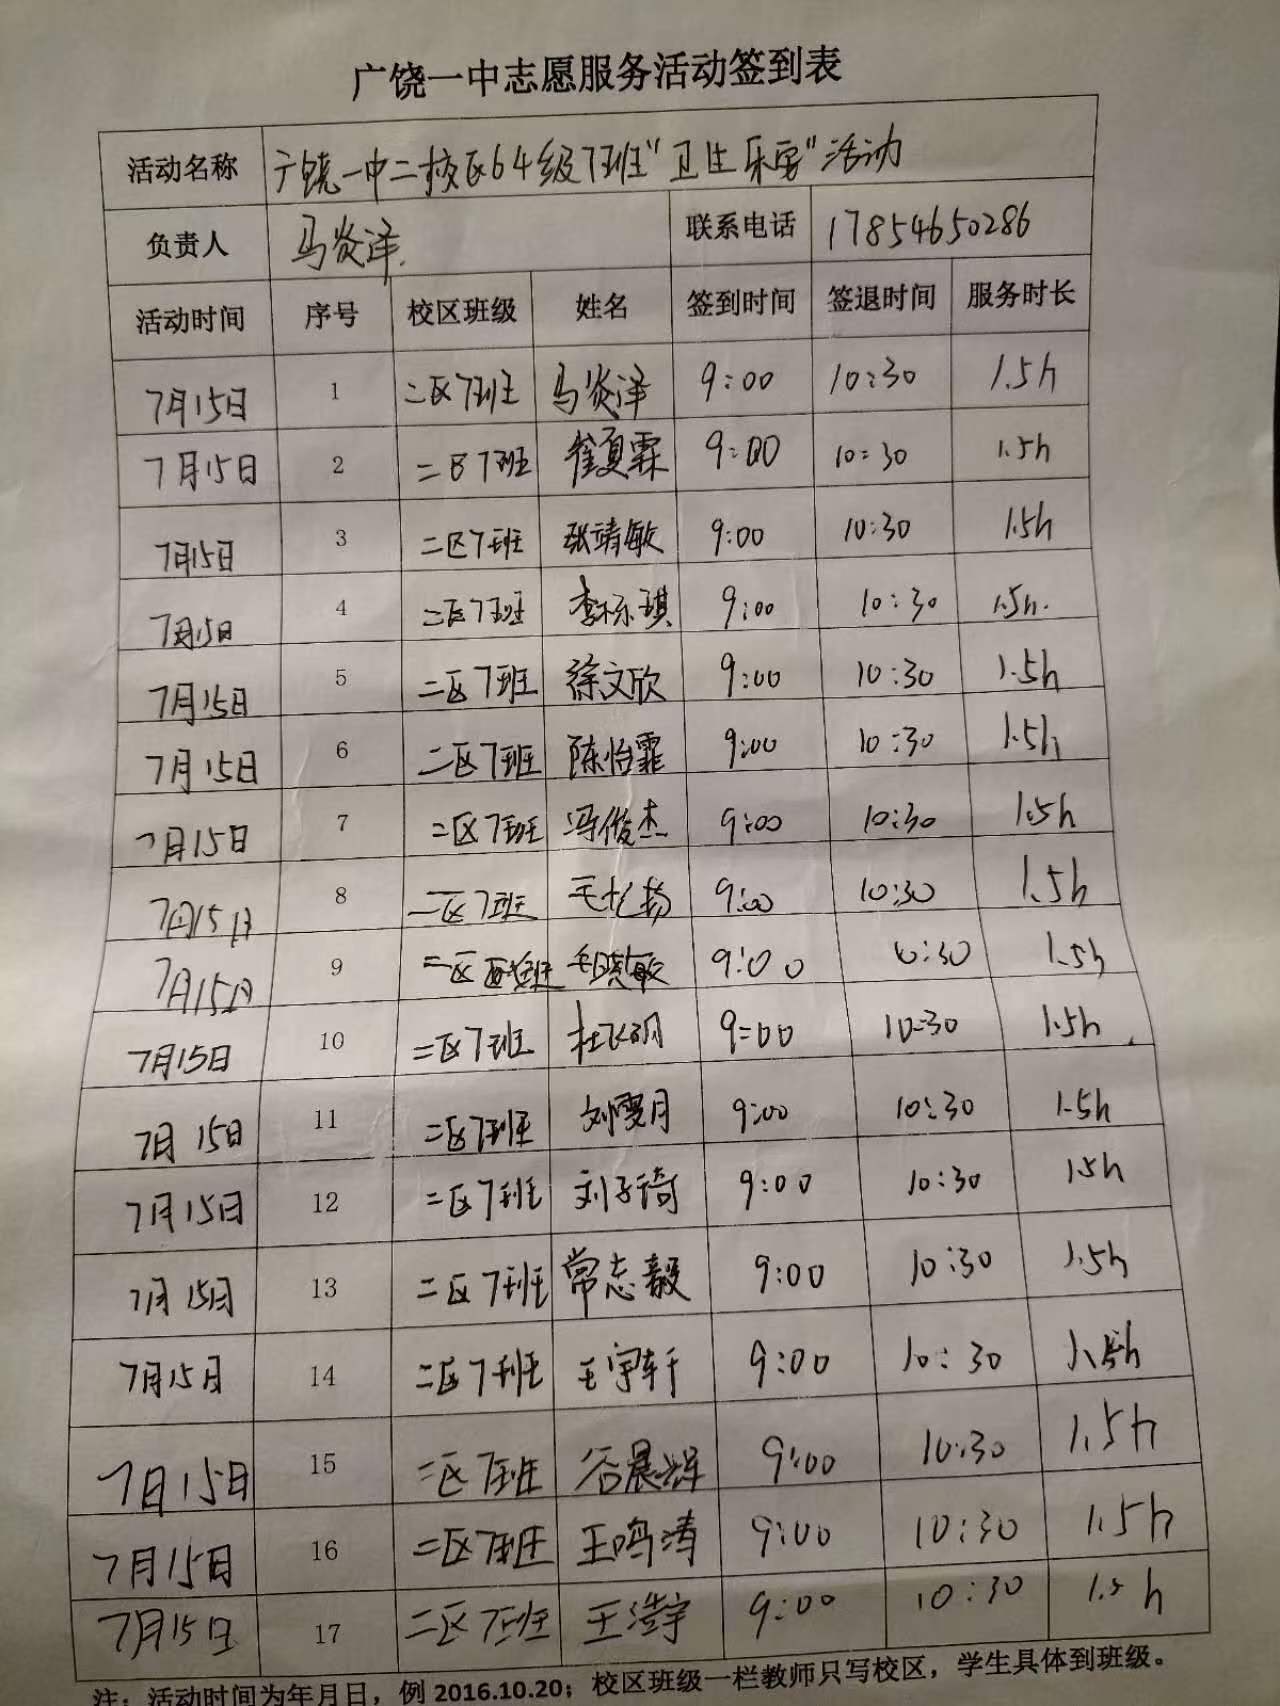 广饶一中志愿服务活动签到表
活动名称 广饶一中二校区64级7班"卫生乐密"活动
负责人 马炎泽 联系电话 17854650286
活动时间 序号 校区班级 姓名 签到时间 签退时间 服务时长
7月15日 1 二区7班 马炎泽 9:00 10:30 1.5h
7月15日 2 二区7班 崔夏霖 9:00 10:30 1.5h
7月15日 3 二区7班 张靖敏 9:00 10:30 1.5h
7月15日 4 二区7班 李 琪 9:00 10:30 1.5h.
7月15日 5 二区7班 徐文欣 9:00 10:30 1.5h
7月15日 6 二区7班 陈怡霏 9:00 10:30 1.5h
7月15日 7 二区7班 冯俊杰 9:00 10:30 1.5h
7月15日 8 二区7班 扬 9:00 10:30 1.5h
7月15日 9 二区 班 晓敏 9:00 10:30 1.5h
7月15日 10 二区7班 杜飞明 9:00 10:30 1.5h
7月15日 11 二区7班 刘雯月 9:00 10:30 1.5h
7月15日 12 二区7班 刘子琦 9:00 10:30 1.5h
7月15日 13 二区7班 常志毅 9:00 10:30 1.5h
7月15日 14 二区7班 王宇轩 9:00 10:30 1.5h
7月15日 15 二区7班 谷晨辉 9:00 10:30 1.5h
7月15日 16 二区7班 王鸣涛 9:00 10:30 1.5h
7月15日 17 二区7班 王浩宇 9:00 10:30 1.5h
注：活动时间为年月日，例 2016.10.20；校区班级一栏教师只写校区，学生具体到班级。